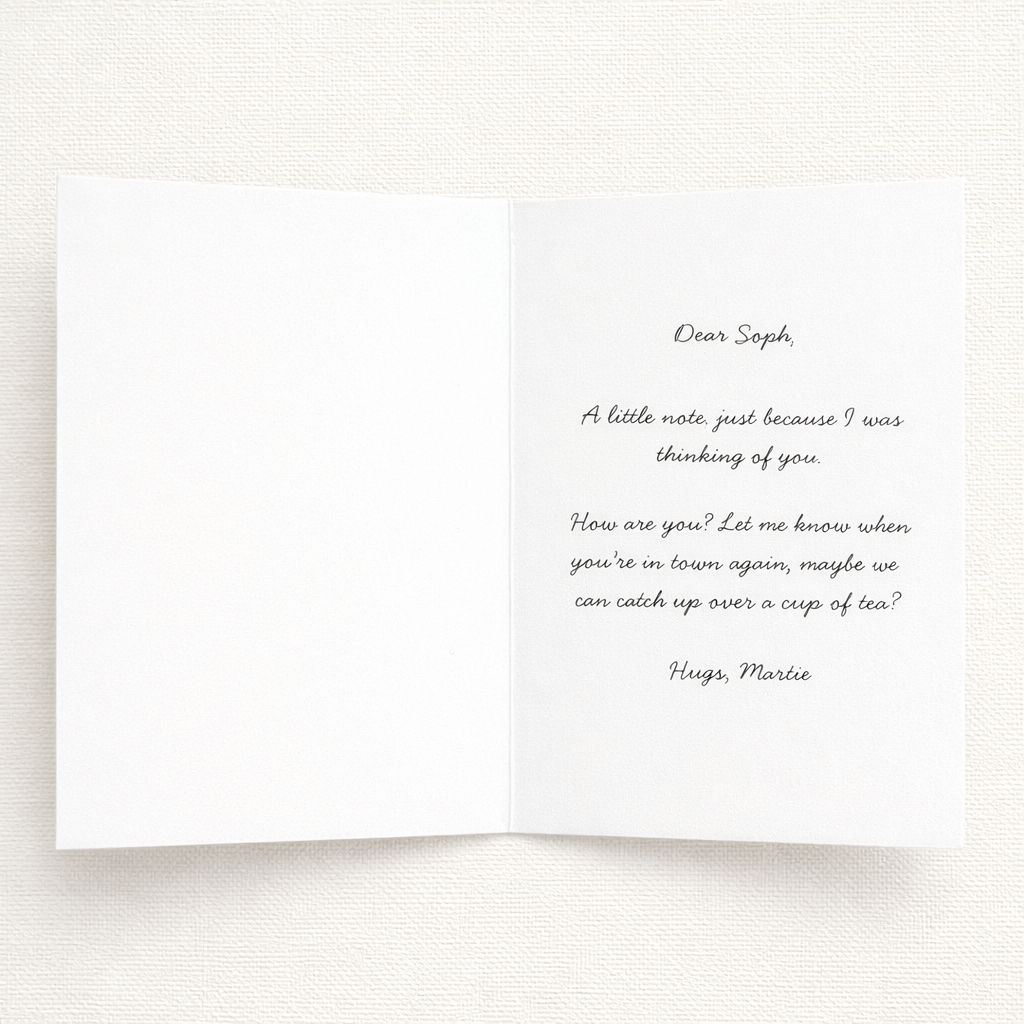 Dear Soph,
A little note. just because I was
thinking of you.
How are you? Let me know when
you're in town again, maybe we
can catch up over a cup of tea?
Hugs, Martie